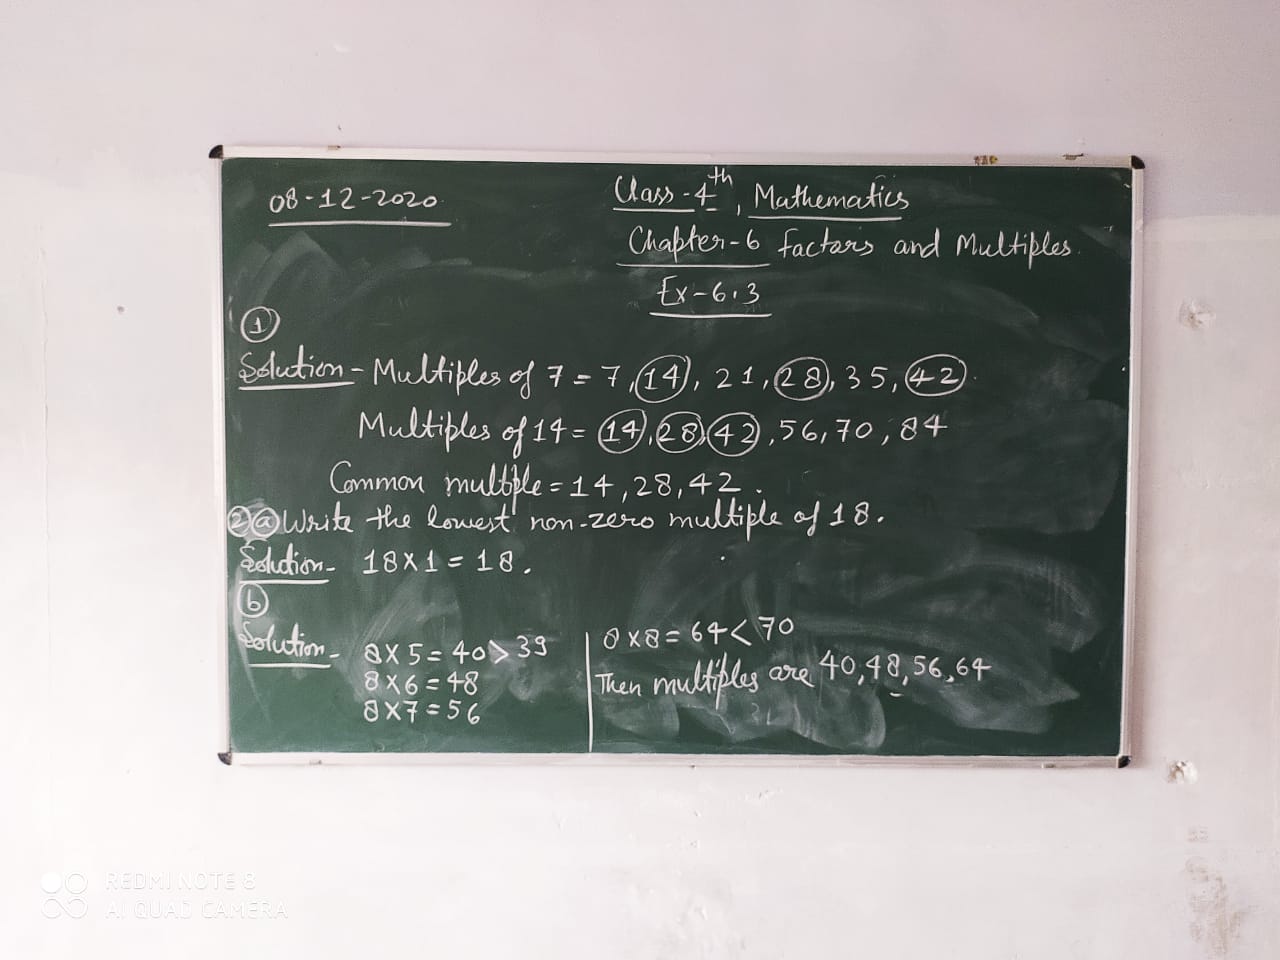 08-12-2020
Class-4th, Mathematics
Chapter-6 Factors and Multiples
Ex-6.3
1
Solution- Multiples of 7 = 7, 14, 21, 28, 35, 42
Multiples of 14 = 14, 28, 42, 56, 70, 84
Common multple = 14, 28, 42.
2 a Write the lowest non-zero multiple of 18.
Solution- 18×1 = 18.
b
Solution- 8×5 = 40 > 39
8×6 = 48
8×7 = 56
8×8 = 64 < 70
Then multiples are 40, 48, 56, 64
REDMI NOTE 8
AI QUAD CAMERA